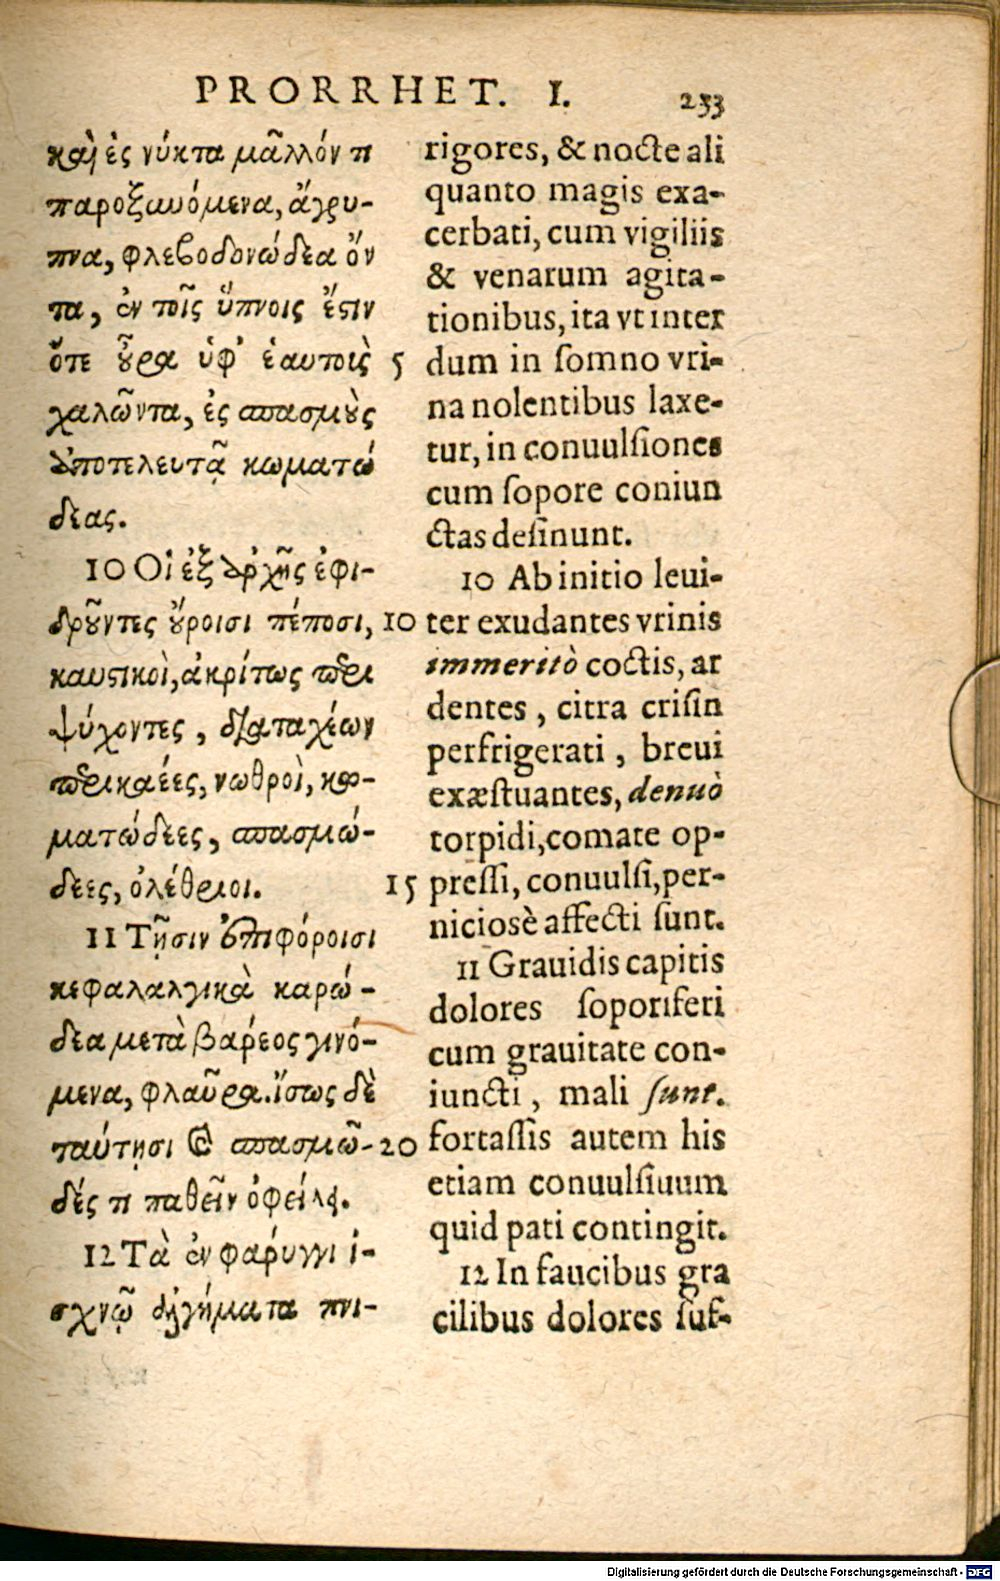 PRORRHET. I. 233
καὶ ἐς νύκτα μᾶλλόν τι
παροξυνόμενα, ἄγρυ-
πνα, φλεβοδονώδεα ὄν
τα, ἐν τοῖς ὕπνοις ἔστιν
ὅτε οὖρα ὑφ' ἑαυτοὺς
χαλῶντα, ἐς σπασμοὺς
ἀποτελευτᾷ κωματώ
δεας.
10 Οἱ ἐξ ἀρχῆς ἐφι-
δροῦντες οὔροισι πέποσι,
καυστικοὶ, ἀκρίτως περι
ψύχοντες, διαταχέων
περικαέες, νωθροὶ, κω-
ματώδεες, σπασμώ-
δεες, ὀλέθριοι.
11 Τῇσιν ἐπιφόροισι
κεφαλαλγικὰ καρώ-
δεα μετὰ βάρεος γινό-
μενα, φλαῦρα. ἴσως δὲ
ταύτῃσι καὶ σπασμῶ-
δές τι παθεῖν ὀφείλει.
12 Τὰ ἐν φαρυγγι ἰ-
σχνῷ ἀλγήματα πνι-
5
10
15
20
rigores, & nocte ali
quanto magis exa-
cerbati, cum vigiliis
& venarum agita-
tionibus, ita vt inter
dum in somno vri-
na nolentibus laxe-
tur, in conuulsiones
cum sopore coniun
ctas desinunt.
10 Ab initio leui-
ter exudantes vrinis
immeritò coctis, ar
dentes, citra crisin
perfrigerati, breui
exæstuantes, denuò
torpidi, comate op-
pressi, conuulsi, per-
niciosè affecti sunt.
11 Grauidis capitis
dolores soporiferi
cum grauitate con-
iuncti, mali sunt.
fortassis autem his
etiam conuulsiuum
quid pati contingit.
12 In faucibus gra
cilibus dolores suf-
Digitalisierung gefördert durch die Deutsche Forschungsgemeinschaft - DFG